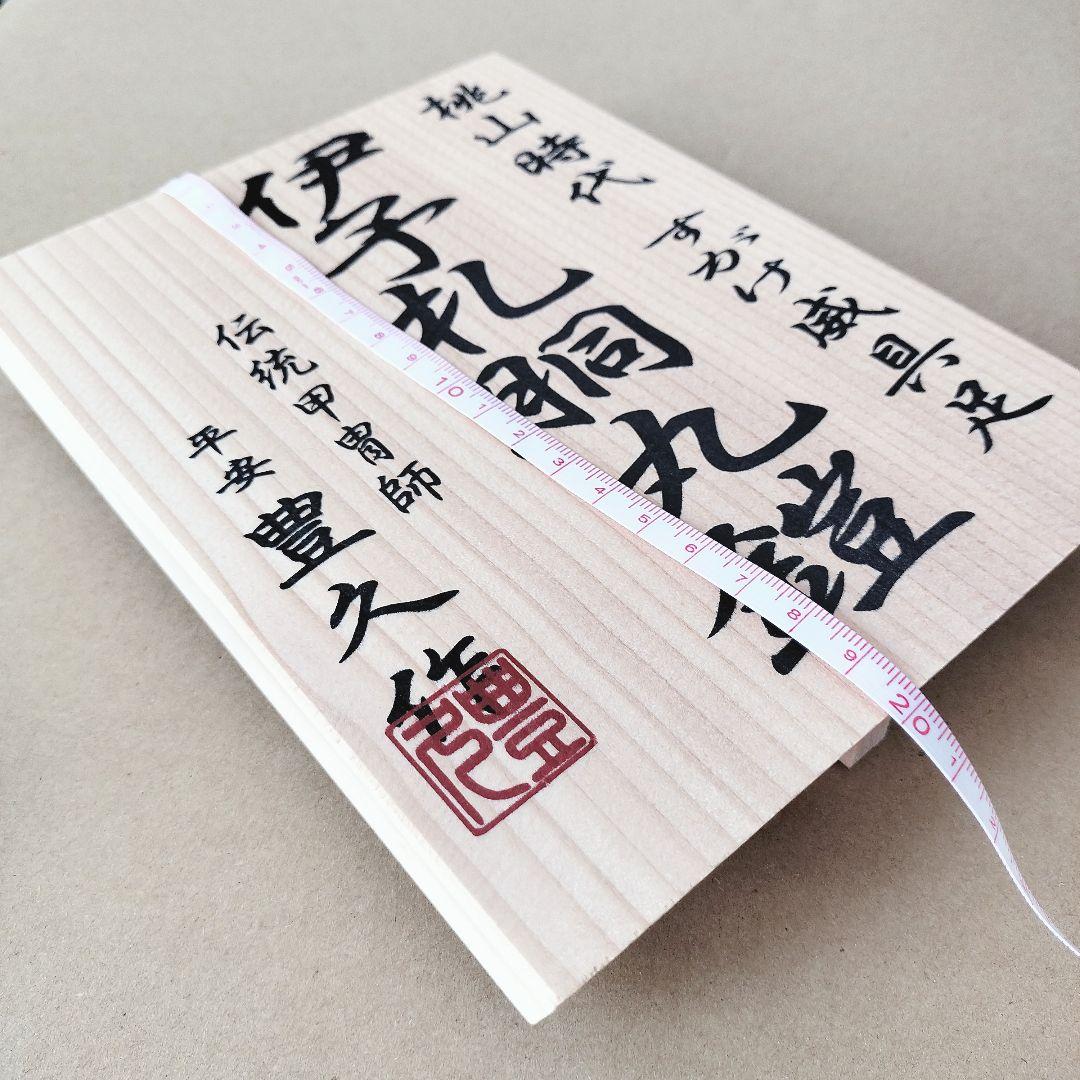 桃山時代 すがけ威具足
伊予札胴丸鎧
伝統甲冑師
平安 豊久作
豊久
3 4 5 6 7 8 9 10 1 2 3 4 5 6 7 8 9 20 1